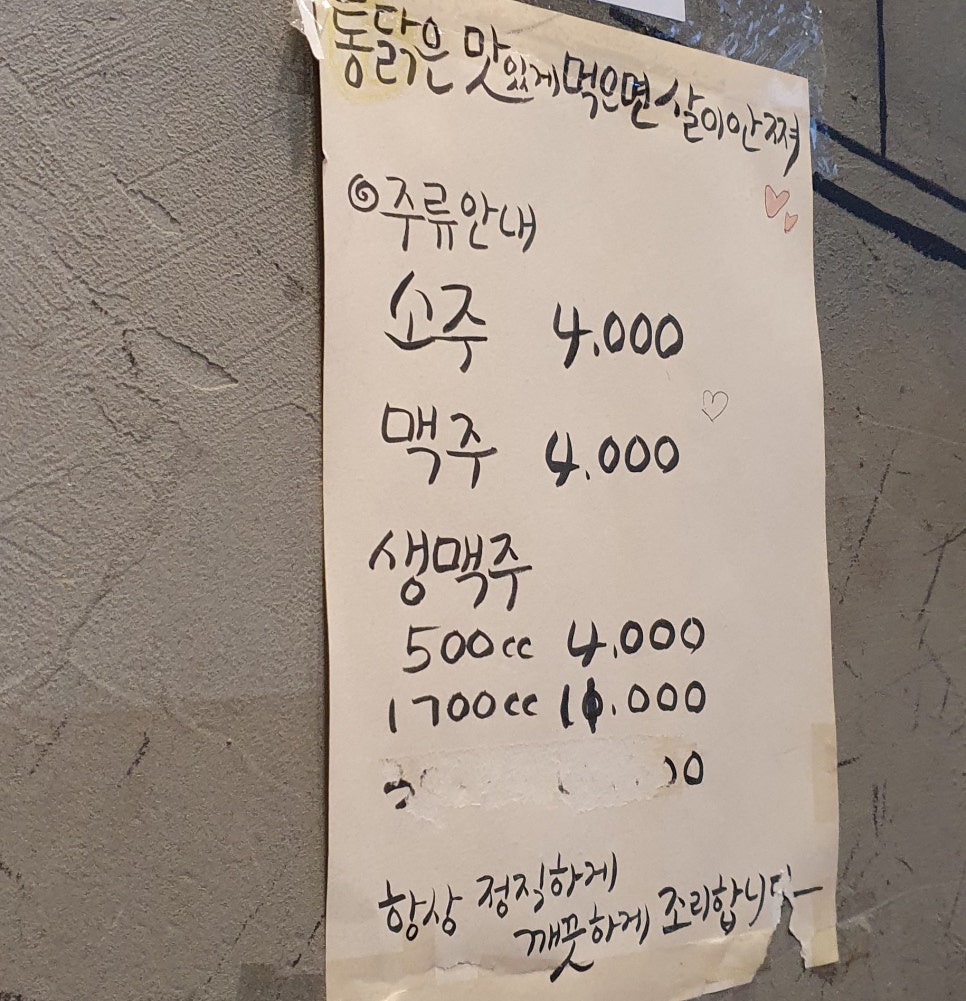 통닭은 맛있게 먹으면 살이안쪄
주류안내
소주 4.000
맥주 4.000
생맥주
500cc 4.000
1700cc 11.000
항상 정직하게
깨끗하게 조리합니다